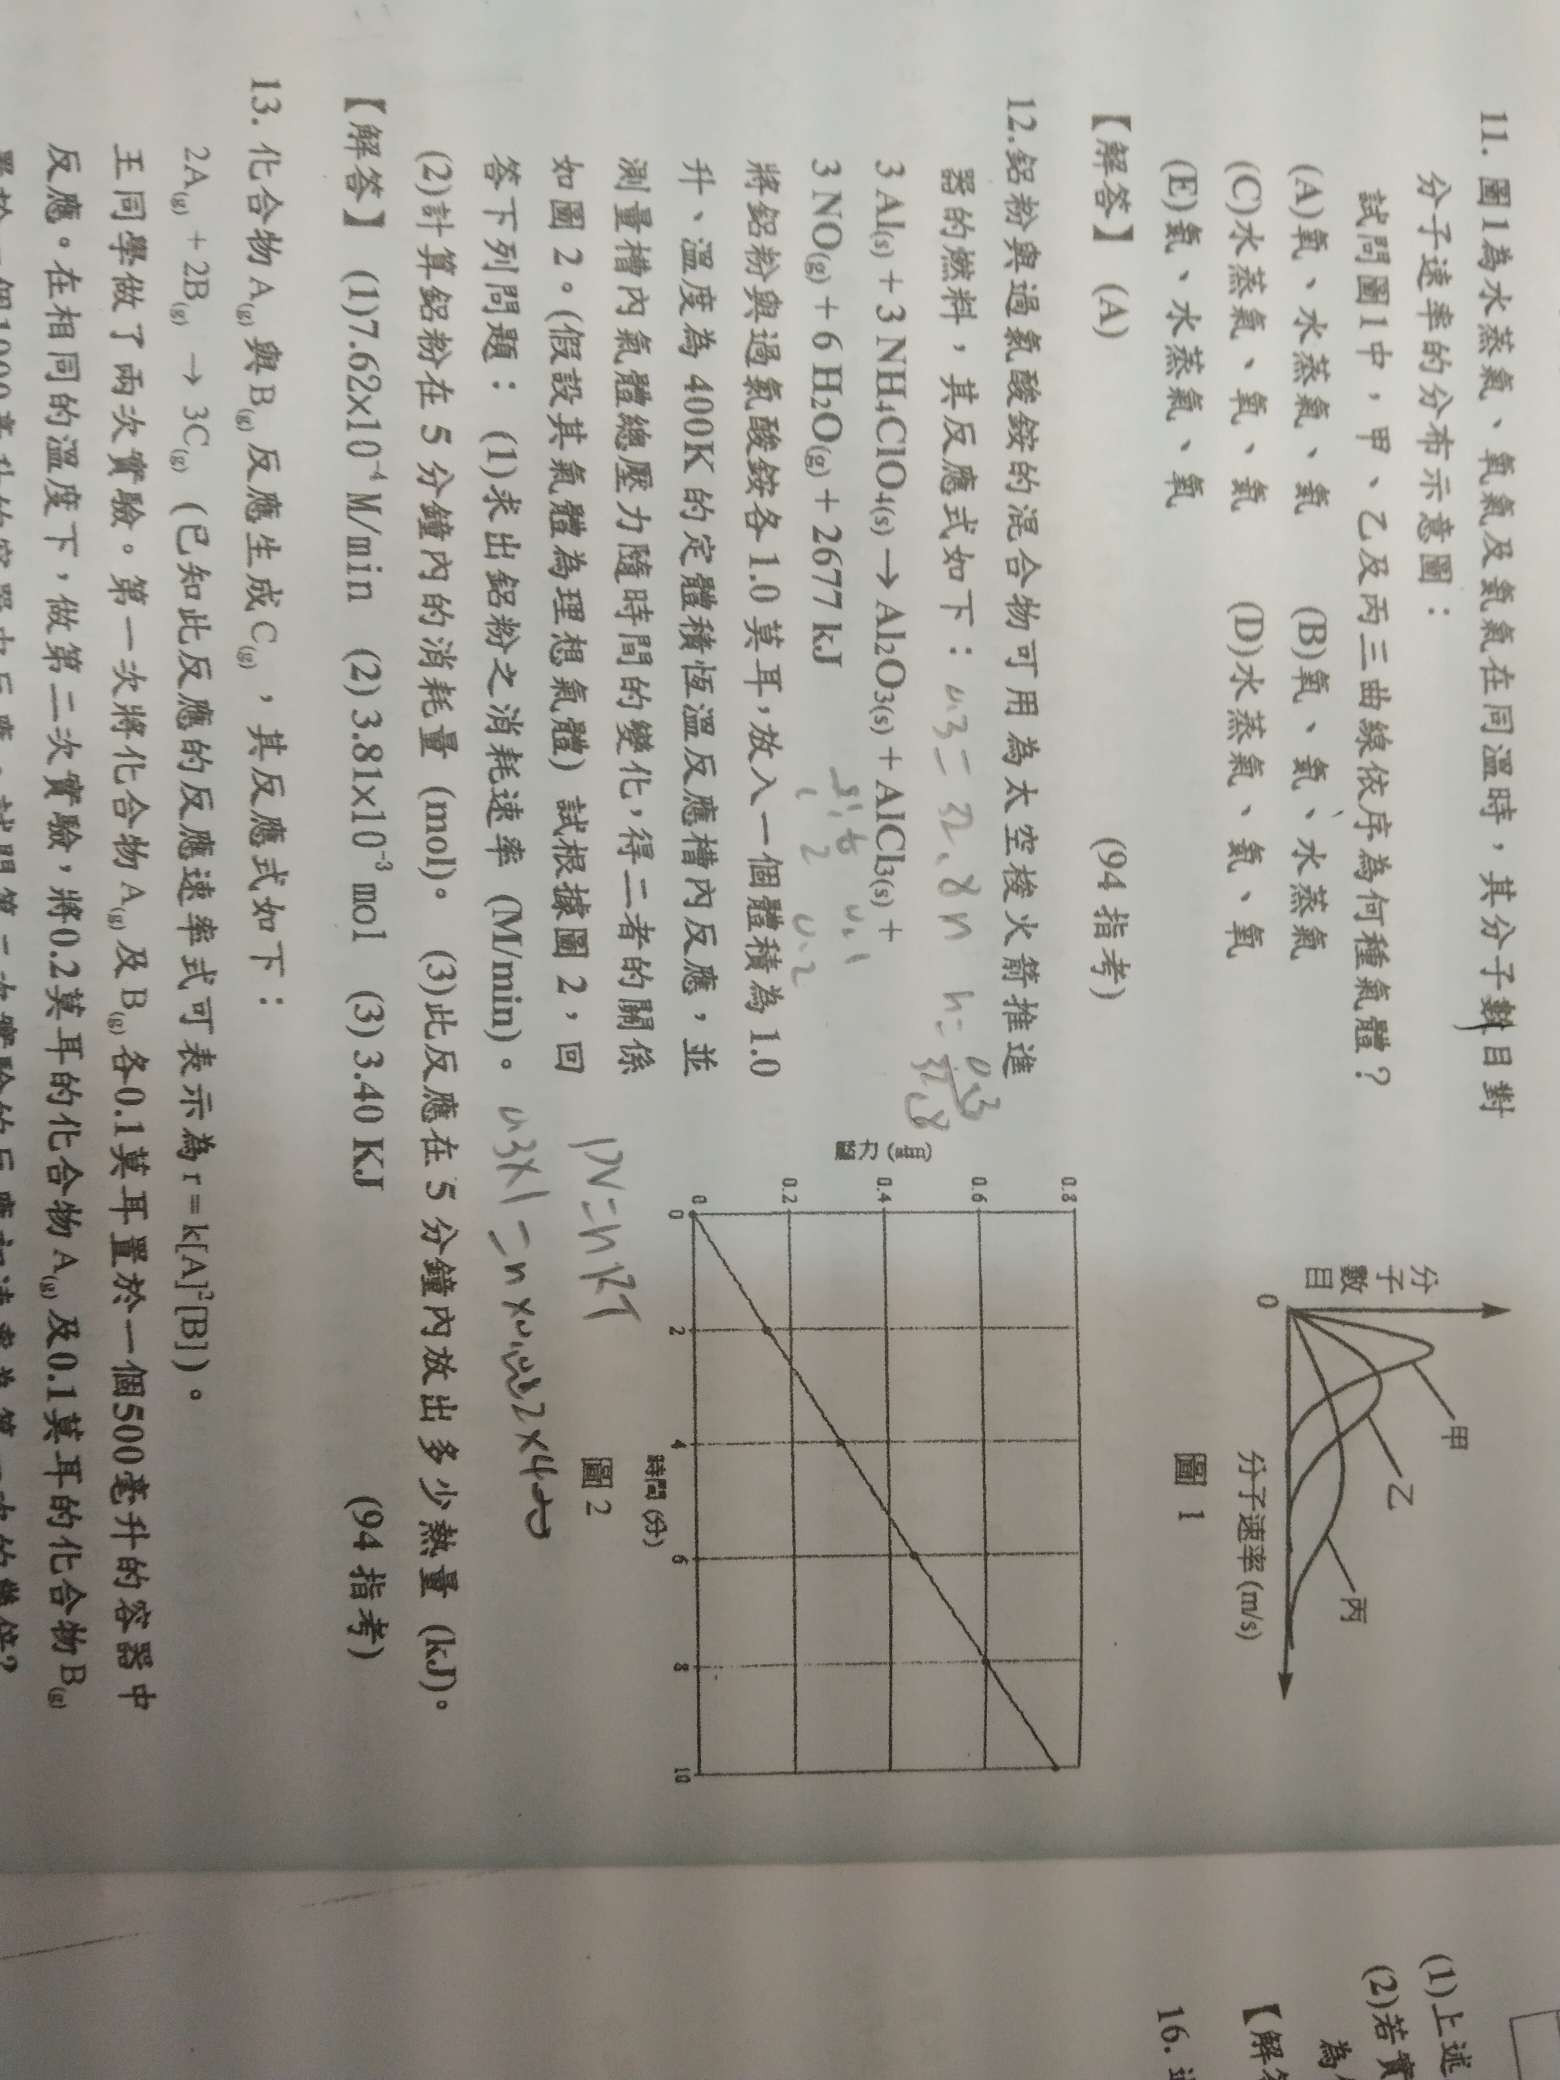 11. 圖1為水蒸氣、氧氣及氦氣在同溫時，其分子數目對
分子速率的分布示意圖：
試問圖1中，甲、乙及丙三曲線依序為何種氣體？
(A)氧、水蒸氣、氦 (B)氧、氦、水蒸氣
(C)水蒸氣、氧、氦 (D)水蒸氣、氦、氧
(E)氦、水蒸氣、氧
【解答】(A) (94 指考)
分子數目
0
甲
乙
丙
分子速率 (m/s)
圖 1
12.鋁粉與過氯酸銨的混合物可用為太空梭火箭推進
器的燃料，其反應式如下：
3 Al(s) + 3 NH4ClO4(s) → Al2O3(s) + AlCl3(s) +
3 NO(g) + 6 H2O(g) + 2677 kJ
將鋁粉與過氯酸銨各 1.0 莫耳，放入一個體積為 1.0
升、溫度為 400K 的定體積恆溫反應槽內反應，並
測量槽內氣體總壓力隨時間的變化，得二者的關係
如圖 2。(假設其氣體為理想氣體) 試根據圖 2，回
答下列問題： (1)求出鋁粉之消耗速率 (M/min)。
(2)計算鋁粉在 5 分鐘內的消耗量 (mol)。 (3)此反應在 5 分鐘內放出多少熱量 (kJ)。
【解答】 (1)7.62x10⁻⁴ M/min (2) 3.81x10⁻³ mol (3) 3.40 KJ (94 指考)
壓力(atm)
0.8
0.6
0.4
0.2
0
0 2 4 6 8 10
時間 (分)
圖 2
PV=nRT
0.3×1=n×0.082×400
13. 化合物 A(g) 與 B(g) 反應生成 C(g)，其反應式如下：
2A(g) + 2B(g) → 3C(g) (已知此反應的反應速率式可表示為 r = k[A]²[B])。
王同學做了兩次實驗。第一次將化合物 A(g) 及 B(g) 各0.1莫耳置於一個500毫升的容器中
反應。在相同的溫度下，做第二次實驗，將0.2莫耳的化合物 A(g) 及0.1莫耳的化合物 B(g)
(1)上述
(2)若實
【解
16.